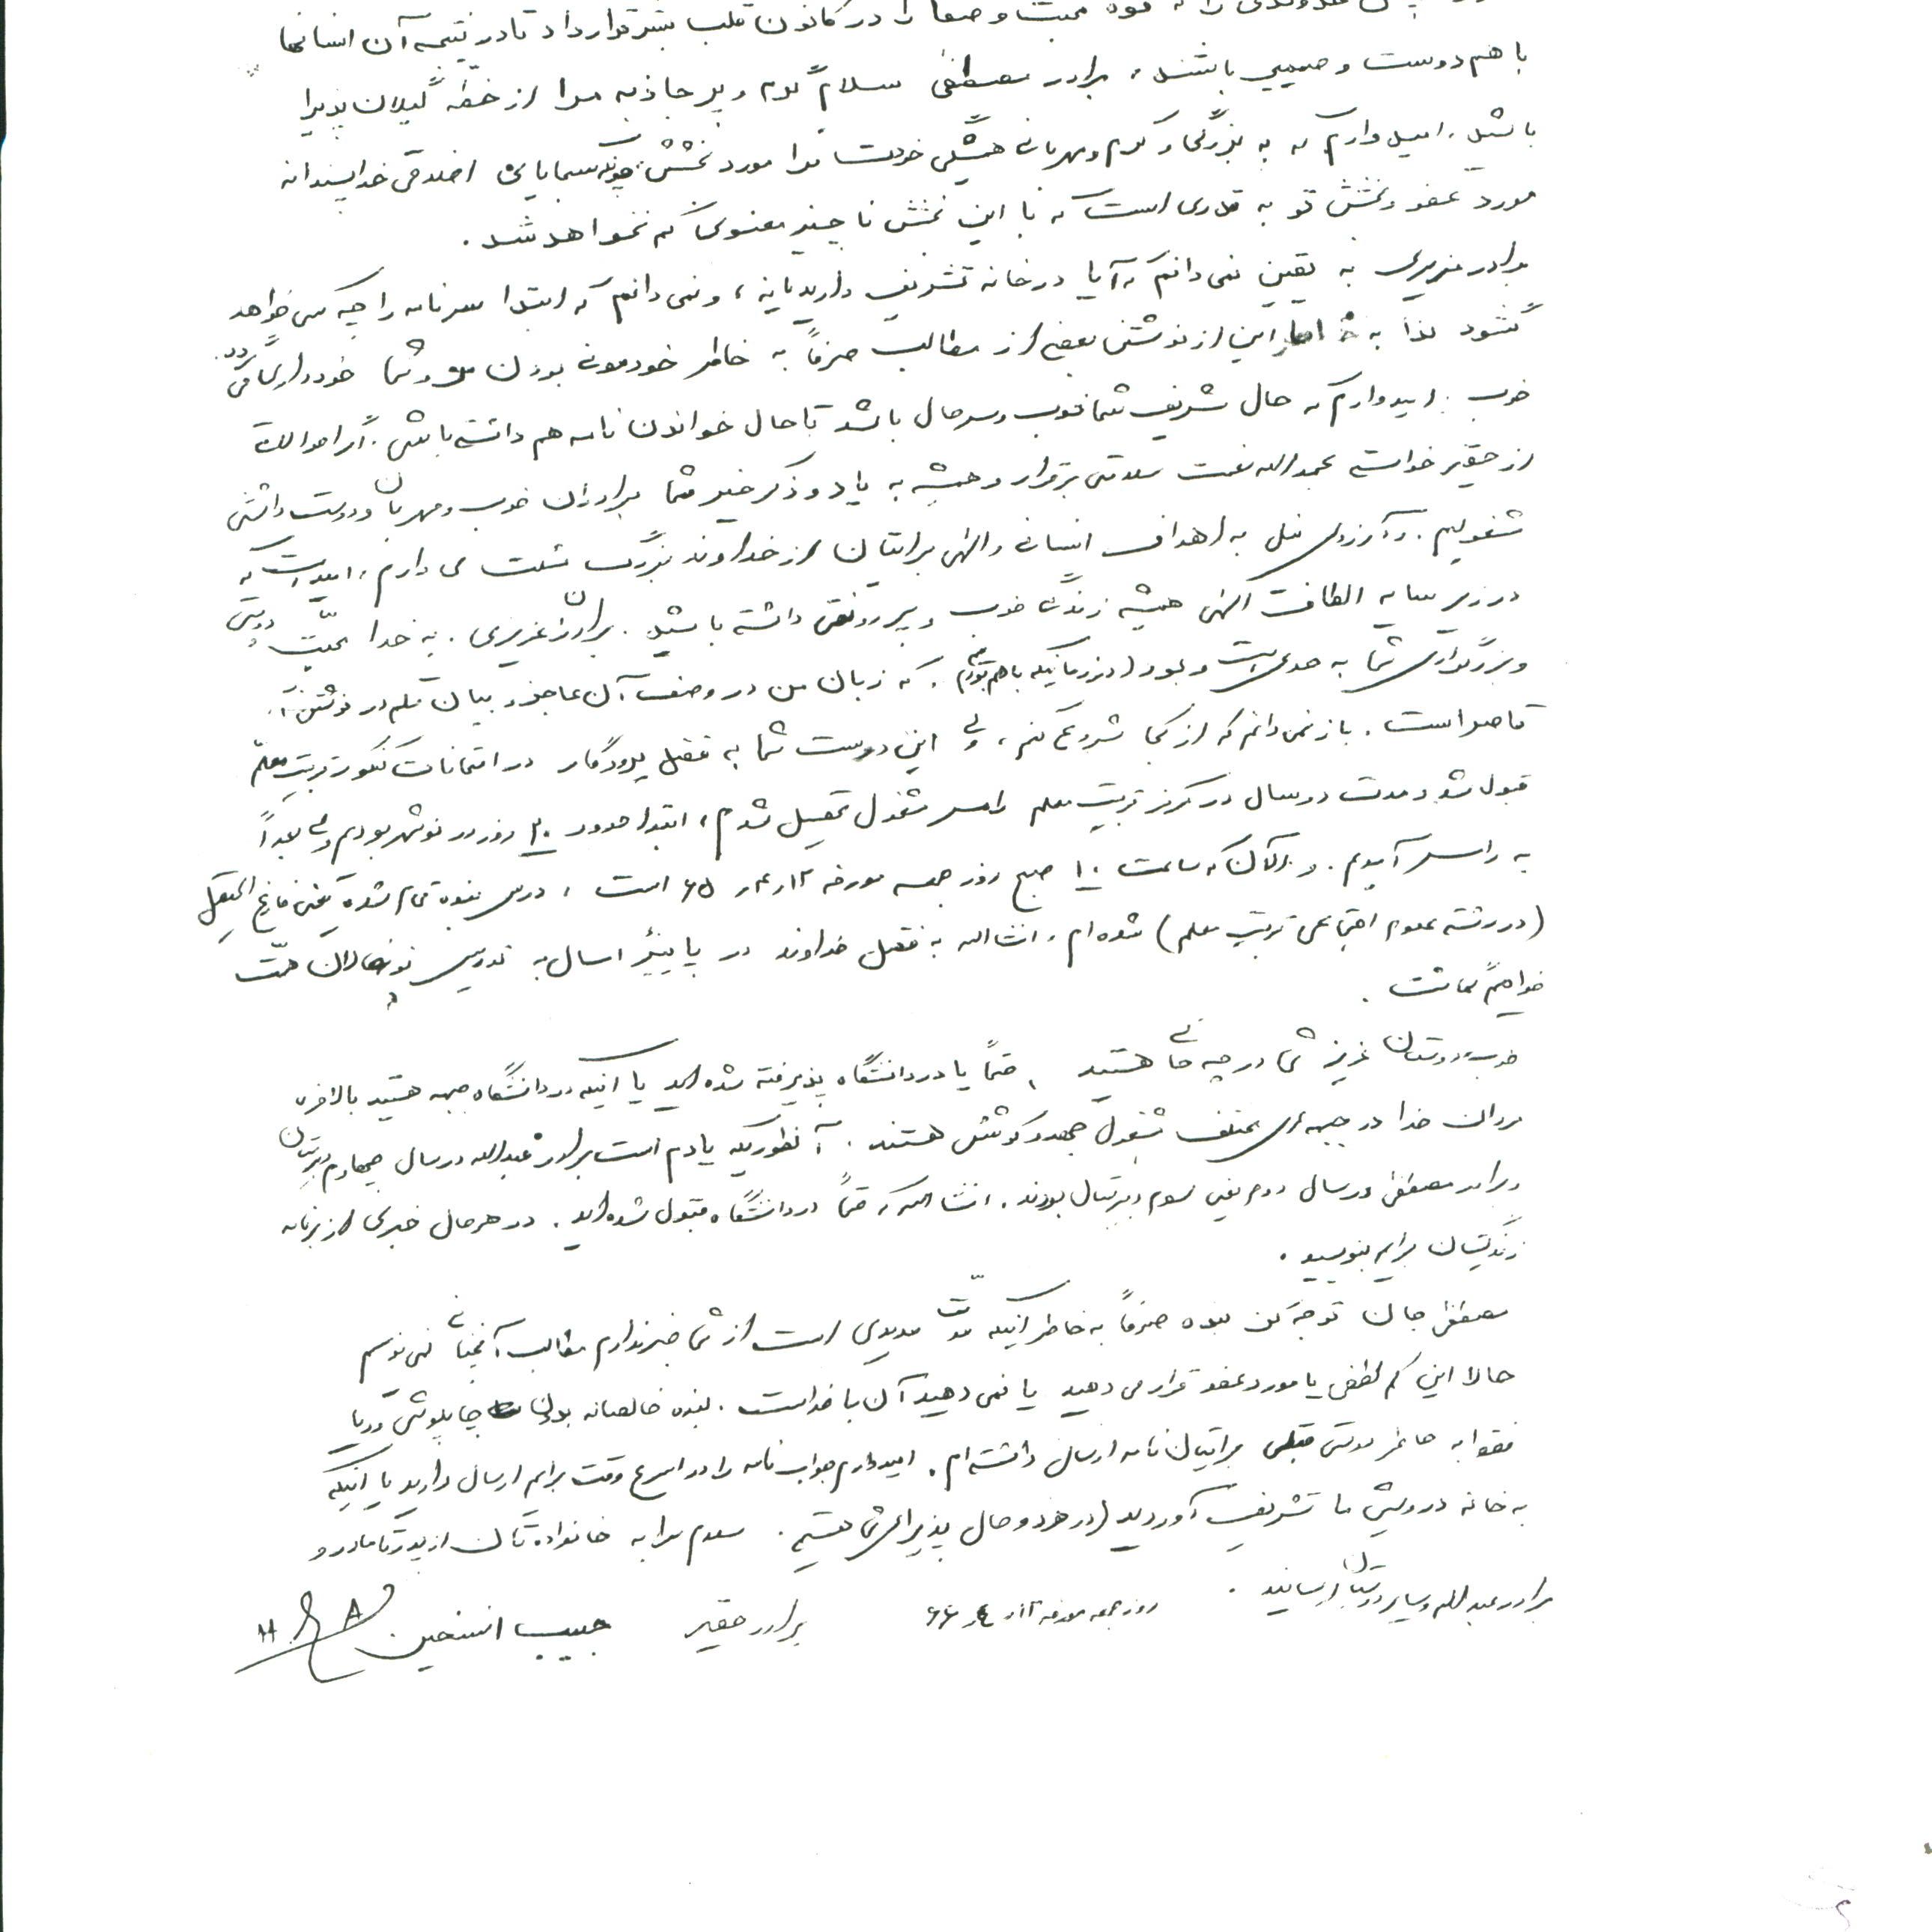 محبت و صفا را در کانون قلب بشر قرار داد تا در نتیجه آن انسانها
با هم دوست و صمیمی باشند، برادر مصطفی سلام گرم و پر جاذبه مرا از خطّه گیلان پذیرا
باشید، امیدوارم که به بزرگی و کرم و مهربانی همیشگی خودت مرا مورد بخشش چونکه سجایای اخلاقی خداپسندانه
مورد عفو و بخشش تو به قدری است که با این بخشش ناچیز معنوی کم نخواهد شد.
برادر عزیزم به یقین نمی دانم که آیا در خانه تشریف دارید یا نه، و نمی دانم که ابتدا سر نامه را چه کسی خواهد
گشود لذا به این از نوشتن بعضی از مطالب صرفاً به خاطر خودمونی بودن من و شما خودداری می گردد.
خوب. امیدوارم که حال شریف شما خوب و سرحال باشد تا حال خواندن نامه هم داشته باشی. اگر احوالات
از حقیر خواسته بحمدالله نعمت سلامتی برقرار و همیشه به یاد و ذکر خیر شما برادران خوب و مهربان و دوست داشتنی
مشغولیم. و آرزوی نیل به اهداف انسانی و الهی برایتان از خداوند بزرگ مسئلت می دارم، امید است که
در زیر سایه الطاف الهی همیشه زندگی خوب و پر رونقی داشته باشید. برادران عزیزم. به خدا محبّت دوستی
و بزرگواری شما به حدی است و بود (در زمانیکه با هم بودیم). که زبان من در وصف آن عاجز و بیان قلم در نوشتن آن
قاصر است. باز نمی دانم که از کجا شروع کنم، ولی این دوست شما به فضل پروردگار در امتحانات کنکور تربیت معلم
قبول شد و مدت دو سال در مرکز تربیت معلم رامسر مشغول تحصیل شدم، ابتدا حدود ۲۰ روز در نوشهر بودیم ولی بعداً
به رامسر آمدیم. و الآن که ساعت ۱۰ صبح روز جمعه مورخه است، درس بنده تمام شده یعنی فارغ التحصیل
(در رشته علوم اجتماعی تربیت معلم) شده ام، انشاالله به فضل خداوند در پاییز امسال به تدریس نونهالان همّت
خواهم گماشت.
خوب دوستان عزیز شما در چه حالی هستید، حتماً یا در دانشگاه پذیرفته شده اید یا اینکه در دانشگاه جبهه هستید بالاخره
مردان خدا در جبهه های مختلف مشغول جهد و کوشش هستند. آنطوریکه یادم است برادر عبدالله در سال چهارم دبیرستان
و برادر مصطفی در سال دوم یعنی سوم دبیرستان بودند. انشاالله که حتماً در دانشگاه مقبول شده اید. در هر حال خبری از برنامه
زندگیتان برایم بنویسید.
مصطفی جان توجه کن بنده صرفاً به خاطر اینکه مدّت مدیدی است از شما خبر ندارم مطالب آنچنانی نمی نویسم
حالا این کم لطفی یا مورد عفو قرار می دهید یا نمی دهید آن با خداست. بنده خالصانه بدون چاپلوسی و ریا
فقط به خاطر دوستی قبلی برایتان نامه ارسال داشته ام. امیدوارم جواب نامه را در اسرع وقت برایم ارسال دارید یا اینکه
به خانه درویشی ما تشریف آوردید (در هر دو حال پذیرای شما هستیم. سلام مرا به خانواده تان از پدر تا مادر و
برادر عبدالله و سایر دوستان برسانید. روز جمعه مورخه برادر حقیر حبیب